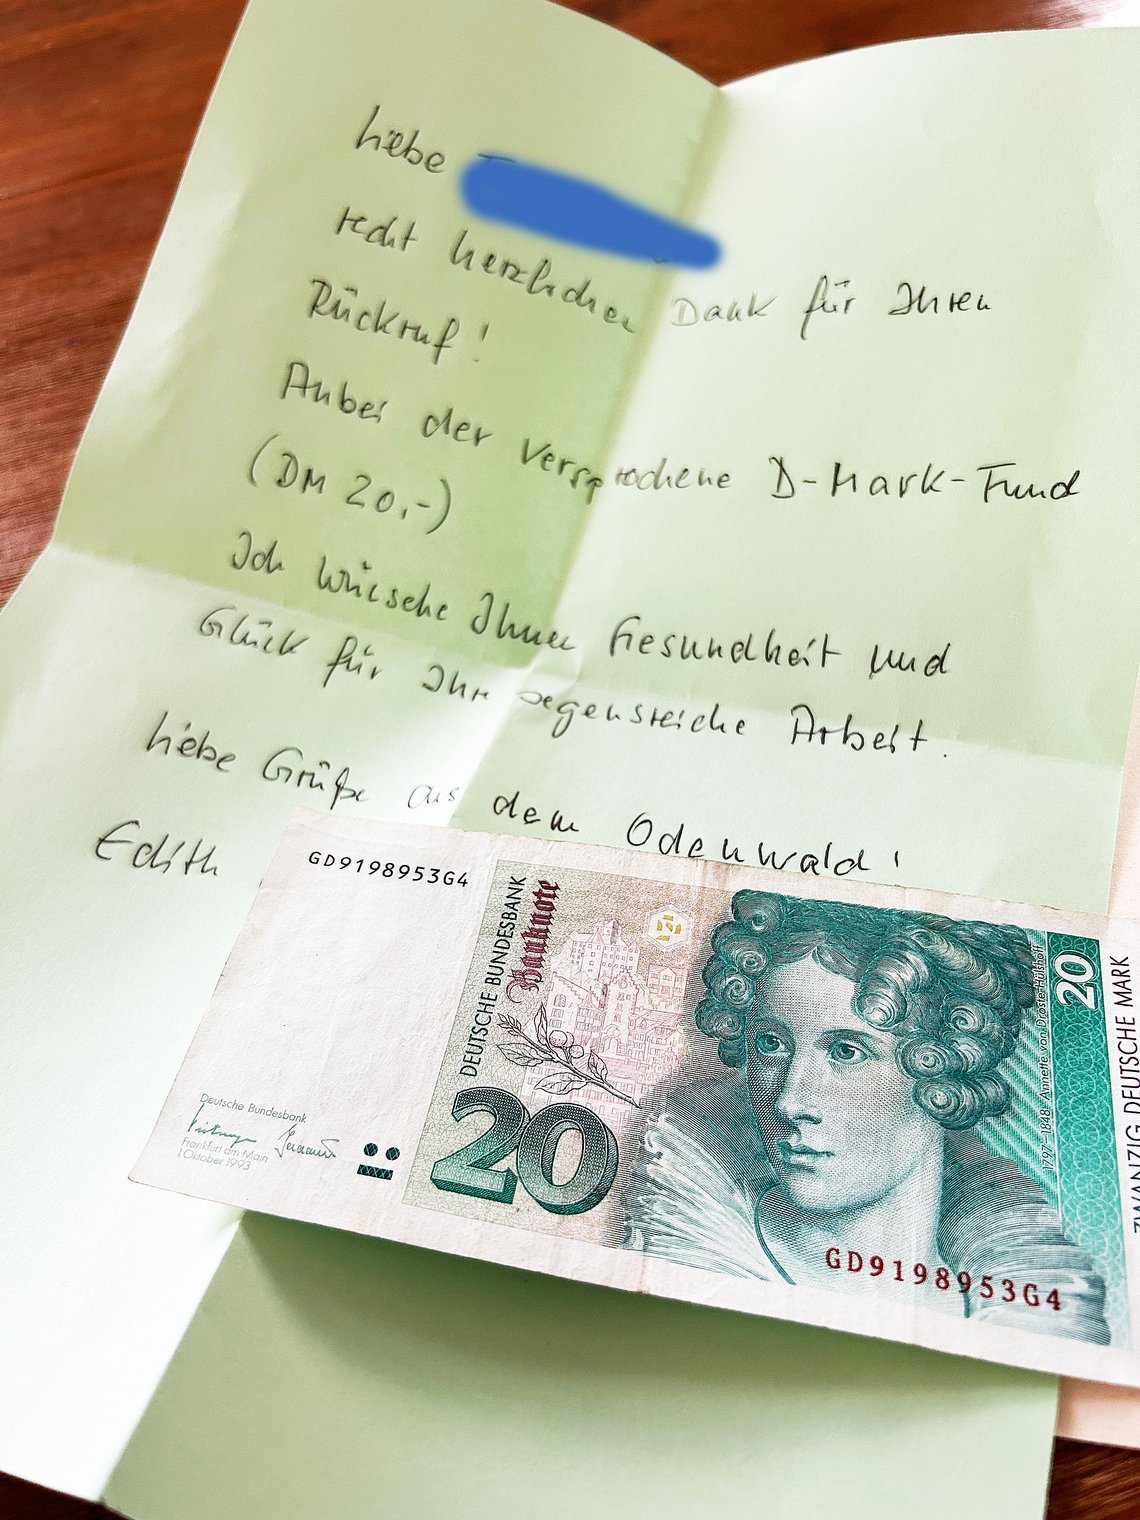 Liebe
recht herzlichen Dank für Ihren
Rückruf!
Anbei der versprochene D-Mark-Fund
(DM 20,-)
Ich wünsche Ihnen Gesundheit und
Glück für Ihre segensreiche Arbeit.
Liebe Grüße aus dem Odenwald!
Edith
GD9198953G4
DEUTSCHE BUNDESBANK
Banknote
20
Deutsche Bundesbank
Frankfurt am Main
1. Oktober 1993
1797-1848 Annette von Droste-Hülshoff
20
ZWANZIG DEUTSCHE MARK
GD9198953G4